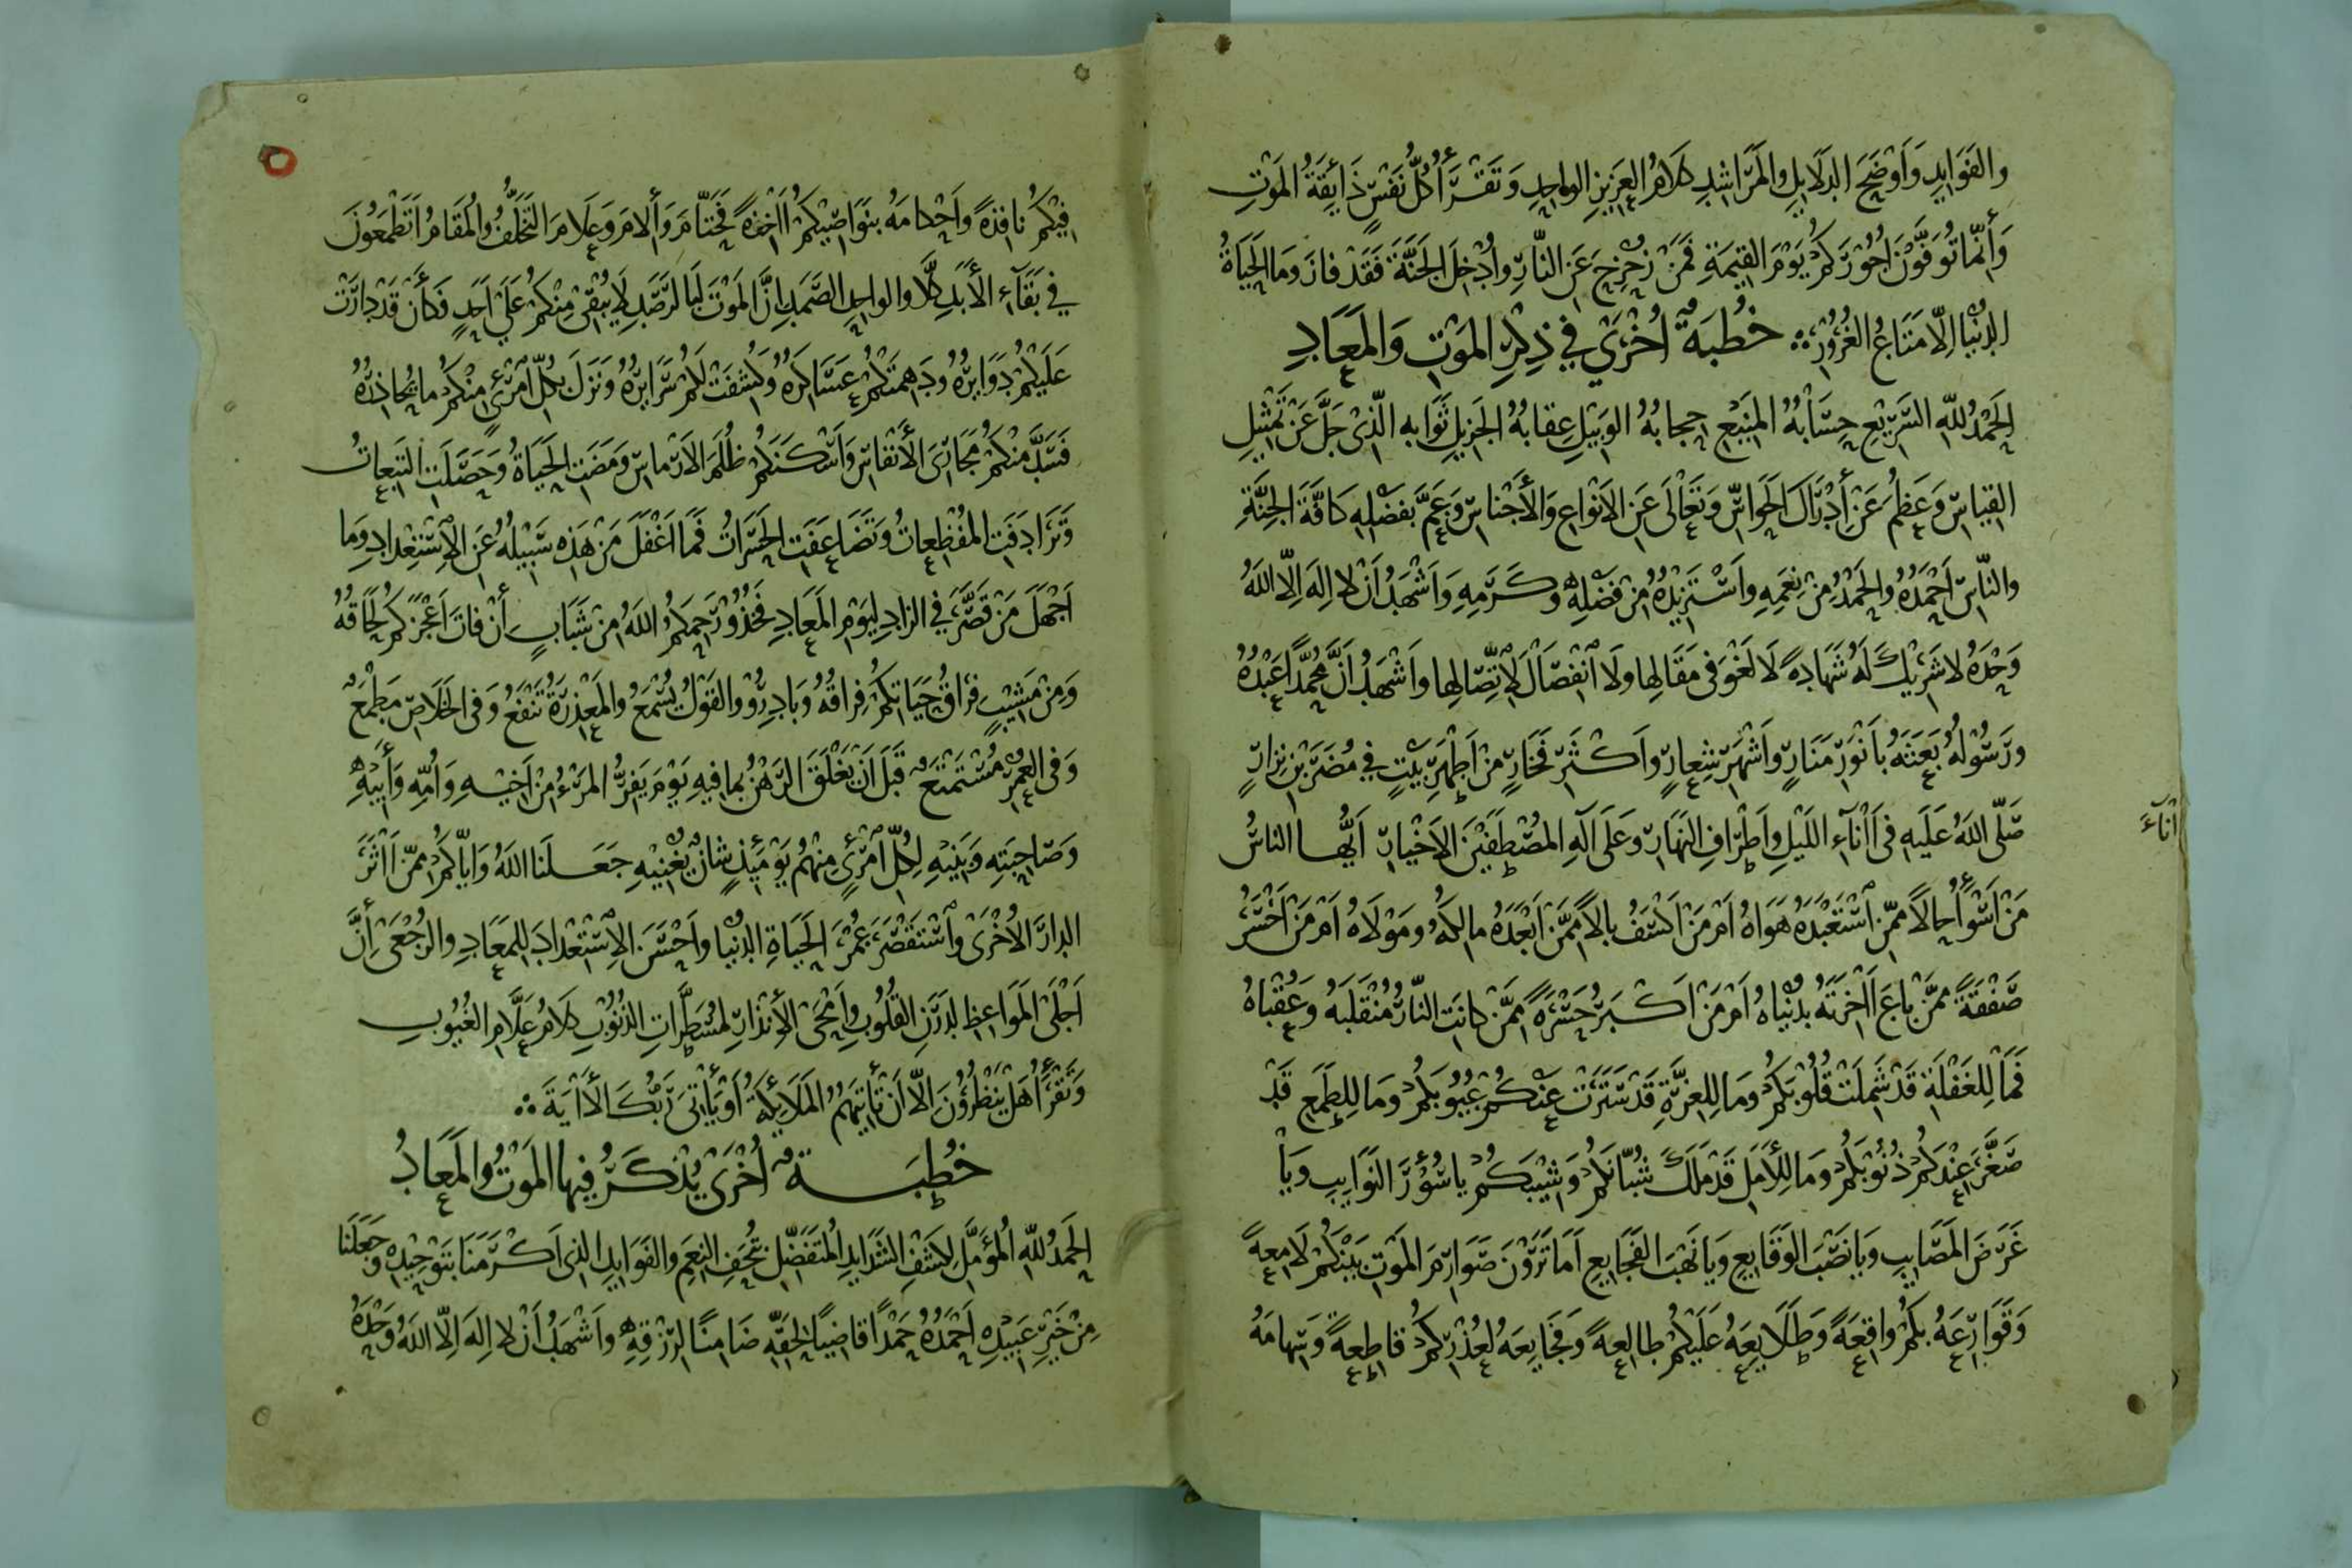 والفَوَايِدِ وَأَوْضَحَ الدَّلَايِلِ والمَرَاشِدِ كَلَامُ العَزِيزِ الوَاحِدِ وَتَقْرَأُ كُلُّ نَفْسٍ ذَايِقَةُ المَوْتِ
وَأَنَّمَا تُوَفَّوْنَ أُجُوْرَكُمْ يَوْمَ القِيٰمَةِ فَمَنْ زُحْزِحَ عَنِ النَّارِ وأُدْخِلَ الجَنَّةَ فَقَدْ فازَ وَمَا الحَيَاةُ
الدُّنْيَا اِلَّا مَتَاعُ الغُرُوْرِ خُطْبَةٌ أُخْرَىٰ فِي ذِكْرِ المَوْتِ وَالمَعَادِ
الحَمْدُ للهِ السَّرِيْعِ حِسَابُهُ المَنِيْعِ حِجابُهُ الوَبِيْلِ عِقابُهُ الجَزِيلِ ثَوَابه الَّذِىْ جَلَّ عَنْ تَمْثِيْلِ
القِيَاسِ وَعَظُمَ عَنْ إِدْرَاكِ الحَوَاسِّ وَتَعَالَى عَنِ الاَنْوَاعِ وَالأَجْناسِ وَعَمَّ بِفَضْلِهِ كَافَّةَ الجِنَّةِ
والنَّاسِ أَحْمَدُهُ والحَمْدُ مِنْ نِعَمِهِ واَسْتَزِيْدُهُ مِنْ فَضْلِهِ وكَرَمِهِ وَأَشْهَدُ أَنْ لا اِلٰهَ اِلَّا اللهُ
وَحْدَهُ لا شَرِيْكَ لَهُ شَهَادةً لَا لَغْوَ فِى مَقَالِها ولَا انْفِصَالَ لِاتِّصَالِها واَشْهَدُ أَنَّ مُحَمَّداً عَبْدُهُ
ورَسُوْلُهُ بَعَثَهُ باَنْوَرِ مَنَارٍ واَشْهَرِ شِعارٍ واَكْثَرِ فَخَارٍ مِنْ اَطْهَرِ بَيْتٍ فِي مُضَرَ بْنِ نِزَارٍ
صَلَّى اللهُ عَلَيهِ فِى اٰنآءِ اللَيْلِ واَطْرَافِ النَهَارِ وَعَلَى آلِهِ المُصْطَفَيْنَ الاَخْيارِ اَيُّهَا الناسُ
اٰناءَ
مَنْ اَسْوَأُ حالاً مِمَّنِ اسْتَعْبَدَهُ هَوَاهُ اَمْ مَنْ اَكْسَفُ بالاً مِمَّنْ اَبْعَدَهُ مالِكُهُ ومَوْلَاهُ اَمْ مَنْ اَخْسَرُ
صَفْقَةً مِمَّنْ بَاعَ اٰخِرَتَهُ بِدُنْيَاهُ اَمْ مَنْ اَكْبَرُ حَسْرَةً مِمَّنْ كانَتِ النَّارُ مُنْقَلَبَهُ وَعُقْبَاهُ
فَمَا لِلغَفْلَةِ قَدْ شَمِلَتْ قُلُوْبَكُمْ وَمَا لِلغِرَّةِ قَدْ سَتَرَتْ عَنْكُمْ عُيُوْبَكُمْ وَمَا لِلطَمَعِ قَدْ
صَغَّرَ عِنْدَكُمْ ذُنُوْبَكُمْ وَمَا لِلأَمَلِ قَدْ مَلَكَ شُبَّانَكُمْ وَشِيْبَكُمْ يا سُؤْرَ النَوَايِبِ وَيَا
غَرَضَ المَصَايِبِ وَيا نَصْبَ الوَقَايِعِ وَيَا نَهْبَ الفَجَايِعِ اَمَا تَرَوْنَ صَوَارِمَ المَوْتِ بَيْنَكُمْ لَامِعةً
وَقَوَارِعَهُ بِكُمْ واقِعَةً وَطَلَايِعَهُ عَلَيْكُمْ طالِعةً وَفَجَايِعَهُ لِعُذْرِكُمْ قاطِعةً وَسِهامَهُ
فِيْكُمْ نافِذةً واَحْكامَهُ بِنَوَاصِيْكُمْ اٰخِذةً فَحَتَّامَ وَإِلامَ وَعَلَامَ التَخَلُّفُ والمُقَامُ اَتَطْمَعُوْنَ
فِي بَقَآءِ الأَبَدِ كَلَّا والواحِدِ الصَّمَدِ اِنَّ المَوْتَ لَبِالرَصَدِ لَا يُبْقِىْ مِنْكُمْ عَلَىٰ اَحَدٍ فَكَأَنْ قَدْ دارَتْ
عَلَيْكُمْ دَوَايِرُهُ ودَهِمَتْكُمْ عَسَاكِرُهُ وكُشِفَتْ لَكُمْ سَرَايِرُهُ وَنَزَلَ بِكُلِّ امْرِئٍ مِنْكُمْ ما يُحَاذِرُهُ
فَسَدَّ مِنْكُمْ مَجَارِىَ الأَنْفَاسِ وَأَسْكَنَكُمْ ظُلَمَ الاَرْماسِ وَمَضَتِ الحَيَاةُ وَحَصَلَتِ التَبِعاتُ
وَتَرَادَفَتِ المُفْظِعَاتُ وَتَضَاعَفَتِ الحَسَرَاتُ فَمَا اَغْفَلَ مَنْ هٰذِهِ سَبِيْلُهُ عَنِ الاِسْتِعْدادِ وَمَا
اَجْهَلَ مَنْ قَصَّرَ فِي الزادِ لِيَوْمِ المَعَادِ فَخُذُوْا رَحِمَكُمُ اللهُ مِنْ شَبَابٍ إِنْ فاتَ اَعْجَزَكُمْ لِحَاقُهُ
وَمِنْ مَشِيْبٍ فِرَاقُ حَيَاتِكُمْ فِراقُهُ وَبَادِرُوْا والقَوْلُ يُسْمَعُ والمَعْذِرَةُ تَنْفَعُ وَفِى الخَلَاصِ مَطْمَعٌ
وَفِى العُمُرِ مُسْتَمْتَعٌ قَبْلَ اَنْ يَغْلَقَ الرَهْنُ بما فِيهِ يَوْمَ يَفِرُّ المَرْءُ مِنْ اَخِيْهِ وَاُمِّهِ وَأَبِيْهِ
وَصَاحِبَتِهِ وَبَنِيْهِ لِكُلِّ امْرِئٍ مِنْهُمْ يَوْمَئِذٍ شانٌ يُغْنِيْهِ جَعَلَنَا اللهُ وَاِيَّاكُمْ مِمَّنْ اٰثَرَ
الدارَ الاُخْرَىْ واسْتَقْصَرَ عُمُرَ الحَيَاةِ الدُنْيا واَحْسَنَ الاِسْتِعْدادَ لِلمَعَادِ والرُجْعَىْ إِنَّ
اَجْلَى المَوَاعِظِ لِدَرَنِ القُلُوْبِ واَمْحَى الأَنْذارِ لِمُسَطَّرَاتِ الذُنُوْبِ كَلَامُ عَلَّامِ الغُيُوْبِ
وَتَقْرَأُ هَلْ يَنْظُرُوْنَ اِلَّا اَنْ تَأْتِيَهُمُ المَلَايِكَةُ أَوْ يَأْتِىَ رَبُّكَ الاٰيَةَ
خُطْبَةٌ أُخْرَىٰ يُذْكَرُ فِيهَا المَوْتُ والمَعَادُ
الحَمْدُ للهِ المُؤَمَّلِ لِكَشْفِ الشَدَايِدِ المُتَفَضِّلِ بِتُحَفِ النِعَمِ والفَوَايِدِ الذى اَكْرَمَنَا بِتَوْحِيْدِهِ وَجَعَلَنَا
مِنْ خَيْرِ عَبِيْدِهِ اَحْمَدُهُ حَمْداً قاضِيًا لِحَقِّهِ ضَامِنًا لِرِزْقِهِ واَشْهَدُ اَنْ لا اِلٰهَ اِلَّا اللهُ وَحْدَهُ